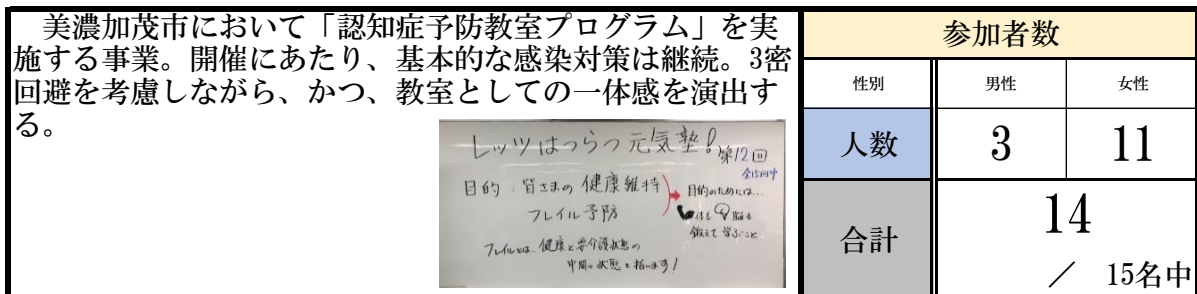 美濃加茂市において「認知症予防教室プログラム」を実
施する事業。開催にあたり、基本的な感染対策は継続。3密
回避を考慮しながら、かつ、教室としての一体感を演出す
る。
レッツはつらつ元気塾!
第12回
全15回中
目的:皆さまの健康維持
フレイル予防
目的のためには…
体も 脳も
鍛えて学ぶこと
フレイルとは、健康と要介護状態の
中間の状態を指します!
参加者数
性別 男性 女性
人数 3 11
合計 14
/ 15名中